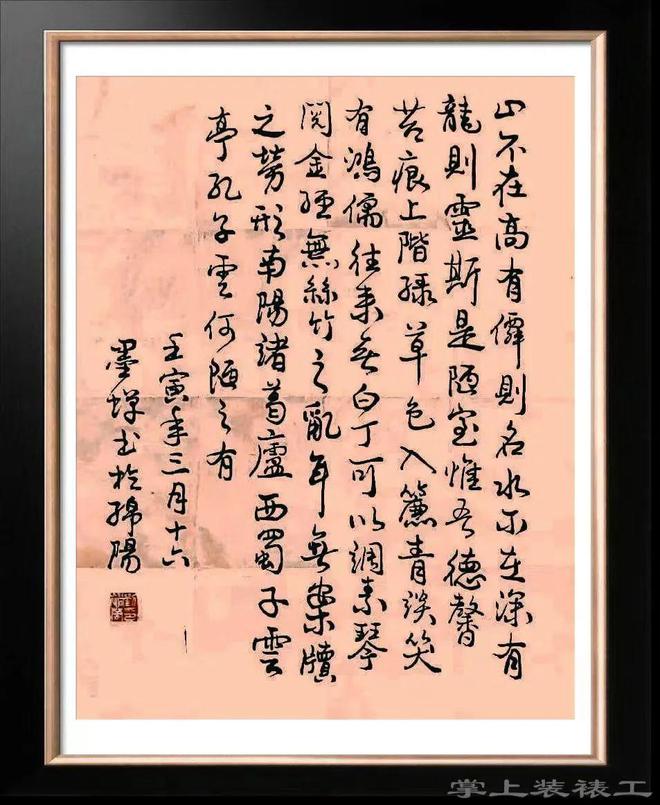 山不在高有僊則名水不在深有
龍則靈斯是陋室惟吾德馨
苔痕上階綠草色入簾青談笑
有鴻儒往來无白丁可以調素琴
閱金經無絲竹之亂耳無案牘
之勞形南陽諸葛廬西蜀子雲
亭孔子雲何陋之有
壬寅年三月十六
墨书於綿陽
掌上装裱工